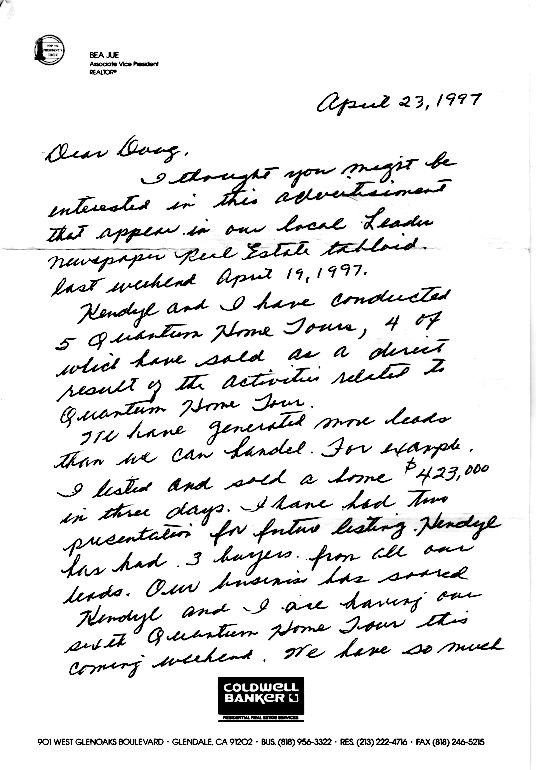 BEA JUE
Associate Vice President
REALTOR®
April 23, 1997
Dear Doug,
I thought you might be
enterested in this advertisiment
that appear in our local Leader
newspaper Real Estate tabloid.
last weekend April 19, 1997.
Kendyl and I have conducted
5 Quantum Home Tours, 4 of
which have sold as a direct
result of the activities related to
Quantum Home Tour.
We have generated more leads
than we can handel. For example.
I listed and sold a home $423,000
in three days. I have had two
presentation for future listing. Kendyl
has had 3 buyers from all our
leads. Our businis has soared
Kendyl and I are having our
sixth Quantum Home Tour this
coming weekend. We have so much
COLDWELL
BANKER
RESIDENTIAL REAL ESTATE SERVICES
901 WEST GLENOAKS BOULEVARD · GLENDALE, CA 91202 · BUS. (818) 956-3322 · RES. (213) 222-4716 · FAX (818) 246-5215